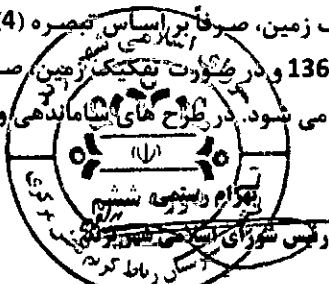 ک زمین، صرفاً بر اساس تبصره (4)
136 و در صورت تفکیک زمین، صـ
می شود. در طرح های ساماندهی و
شورای اسلامی شهر
بهرام رستمی
ششم
رئیس شورای اسلامی شهر پرند
استان رباط کریم